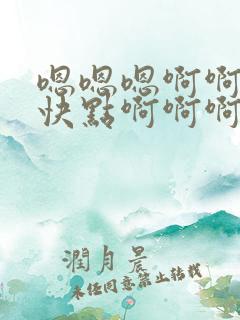 嗯嗯嗯啊啊
快點啊啊啊
潤月晨
未经同意禁止转载